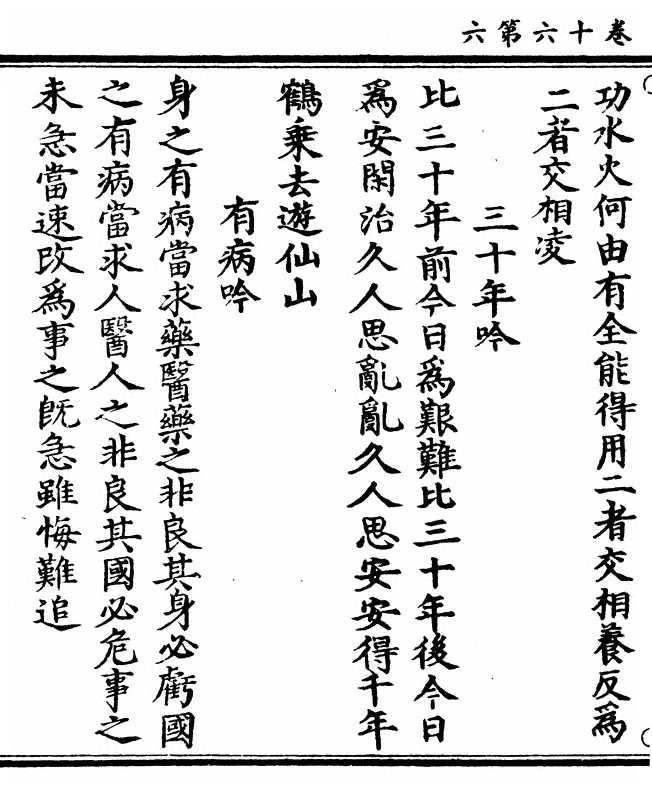 卷十六第六
功水火何由有全能得用二者交相養反爲
二者交相凌
三十年吟
比三十年前今日爲艱難比三十年後今日
爲安閑治久人思亂亂久人思安安得千年
鶴乘去遊仙山
有病吟
身之有病當求藥醫藥之非良其身必虧國
之有病當求人醫人之非良其國必危事之
未急當速改爲事之旣急雖悔難追